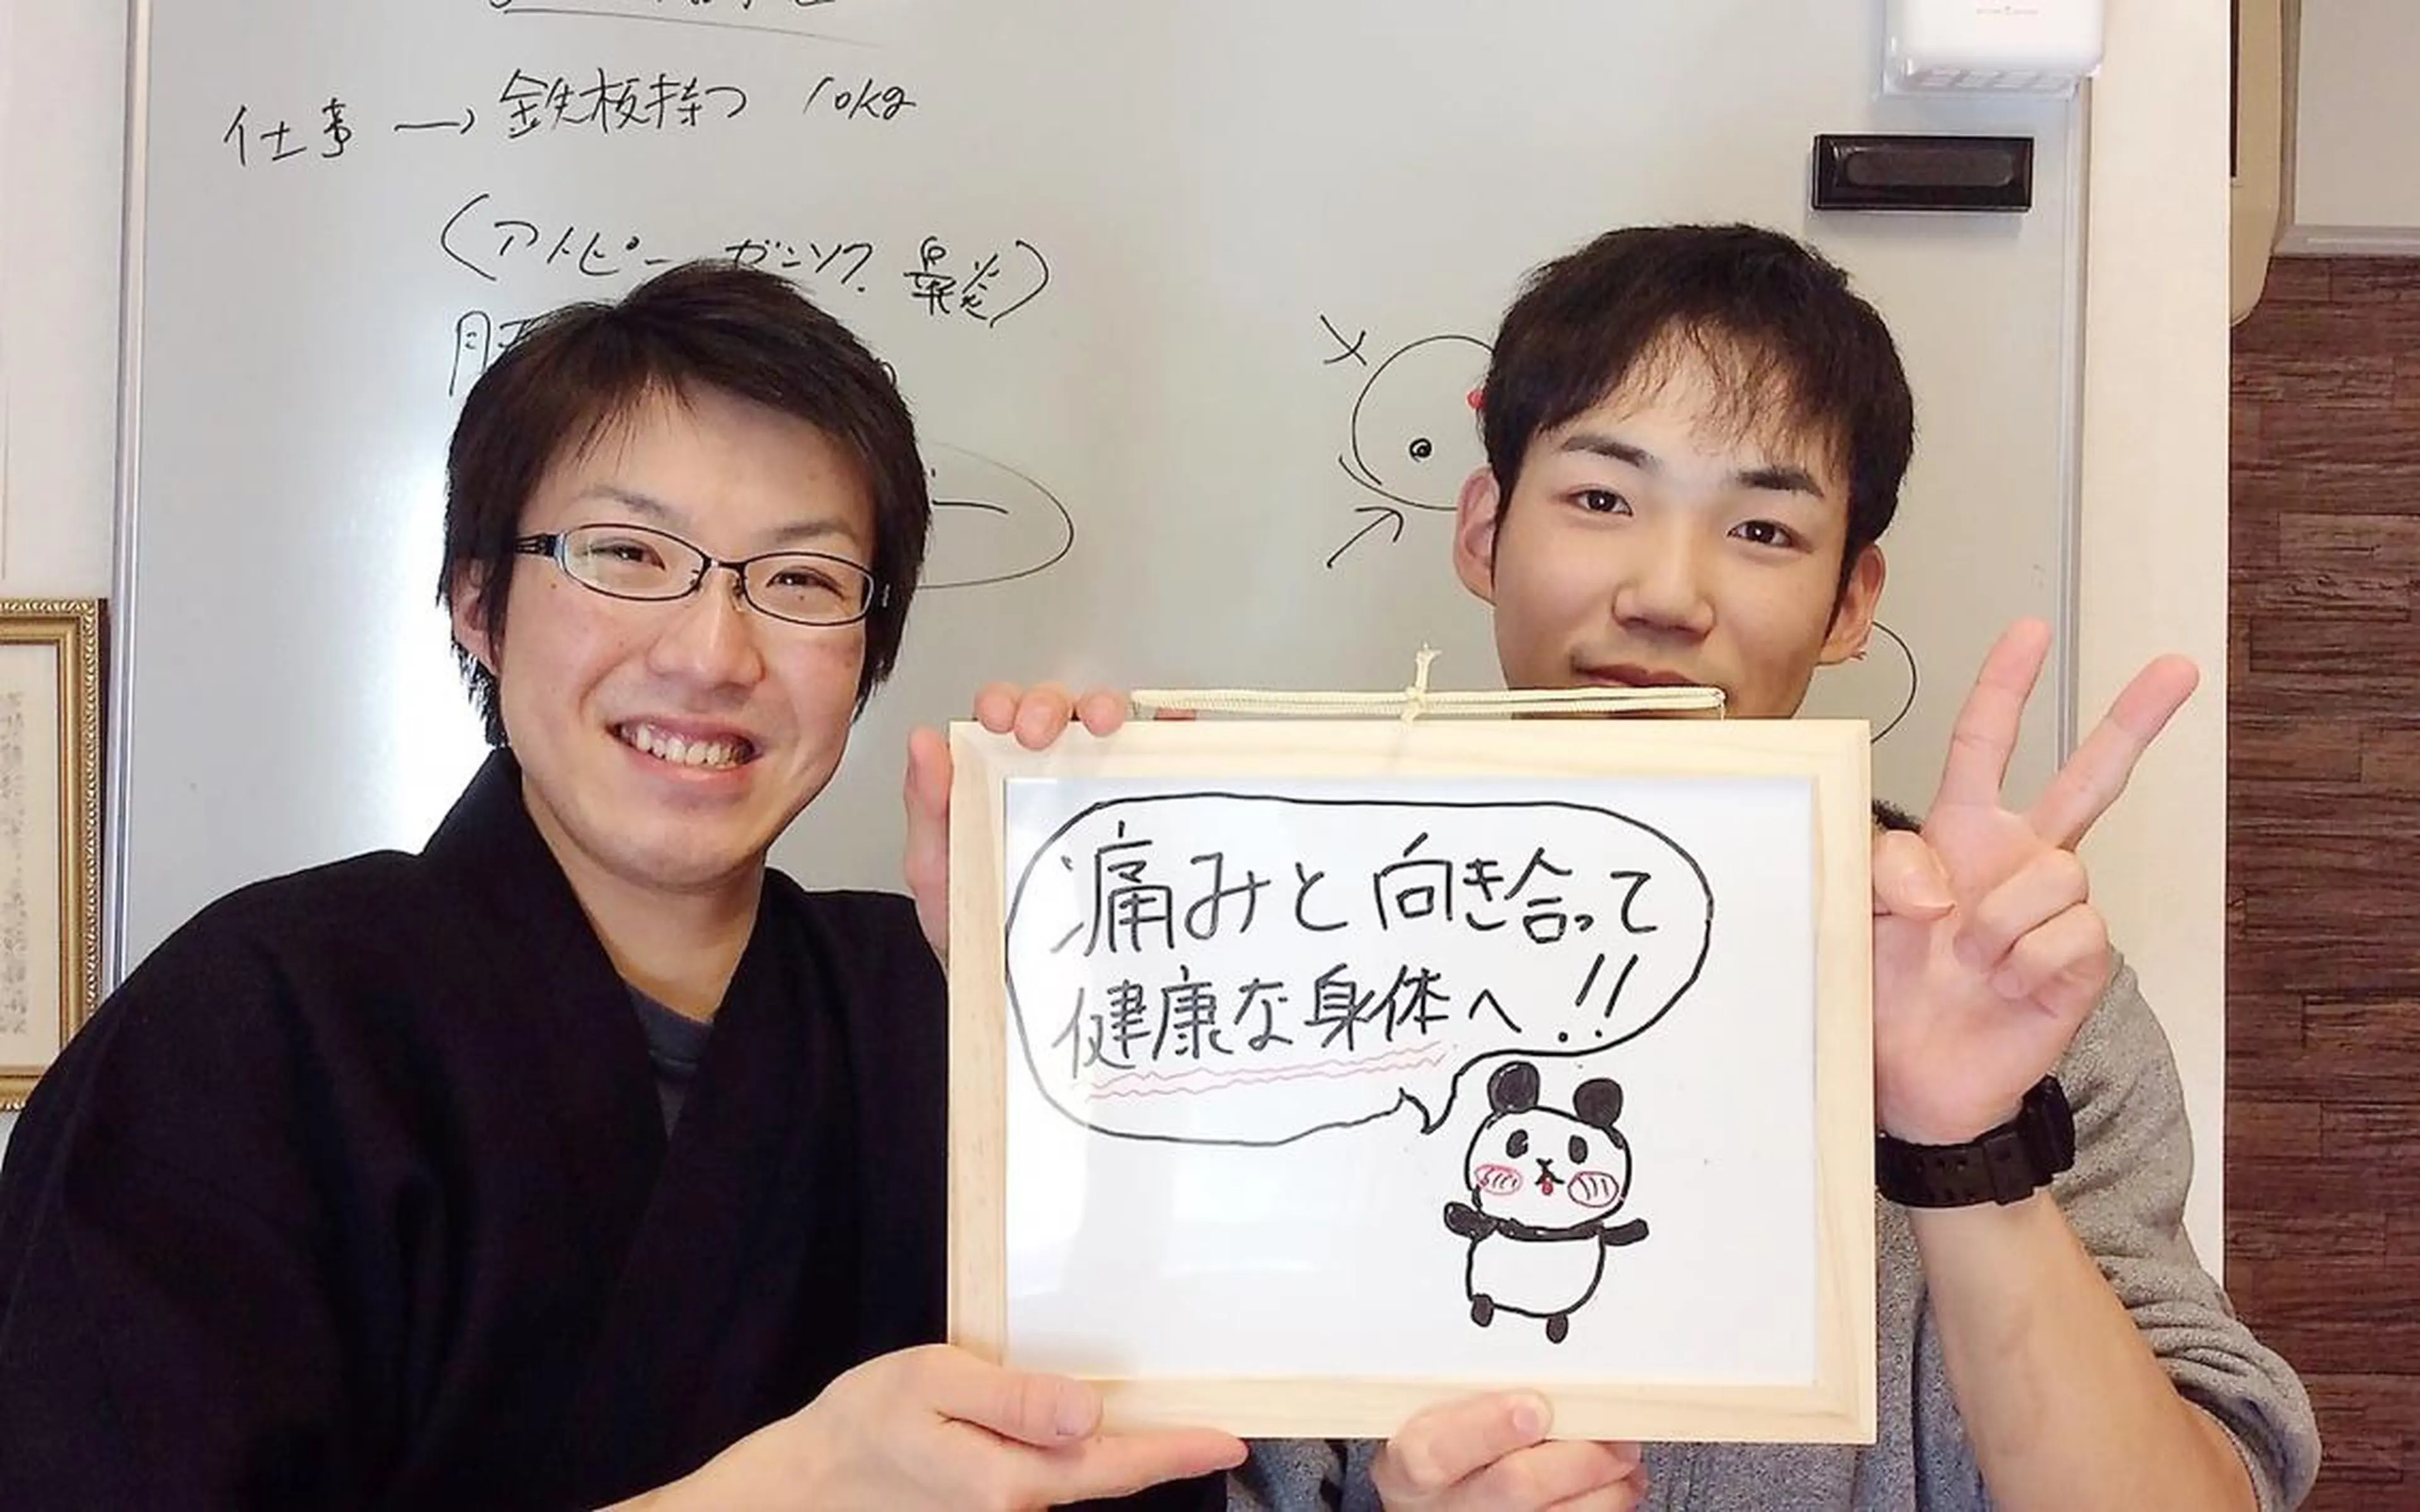 仕事 → 鉄板持つ 10kg
(アトピー ガンソク. 鼻炎)
痛みと向き合って
健康な身体へ!!